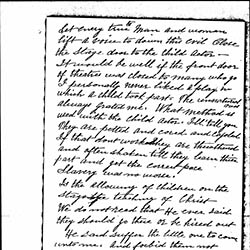 Let every true Man and woman
lift a voice to down this evil. Close
the stage door to the Child Actor —
It would be well if the front door
of theatres was closed to many who go
I personally never liked a play in
which a child took part. The
always grated me. What method is
used with the child actor. I'll tell you
They are petted and coaxed and cajoled
If that dont work they are threatened
and often shaken till they learn their
part and get the correct pose
Slavery was no worse!
Is the allowing of children on the
Stage the teaching of Christ
We do not read that He ever said
they should go there to be hired out
He said Suffer the little ones to come
unto me and forbid them not